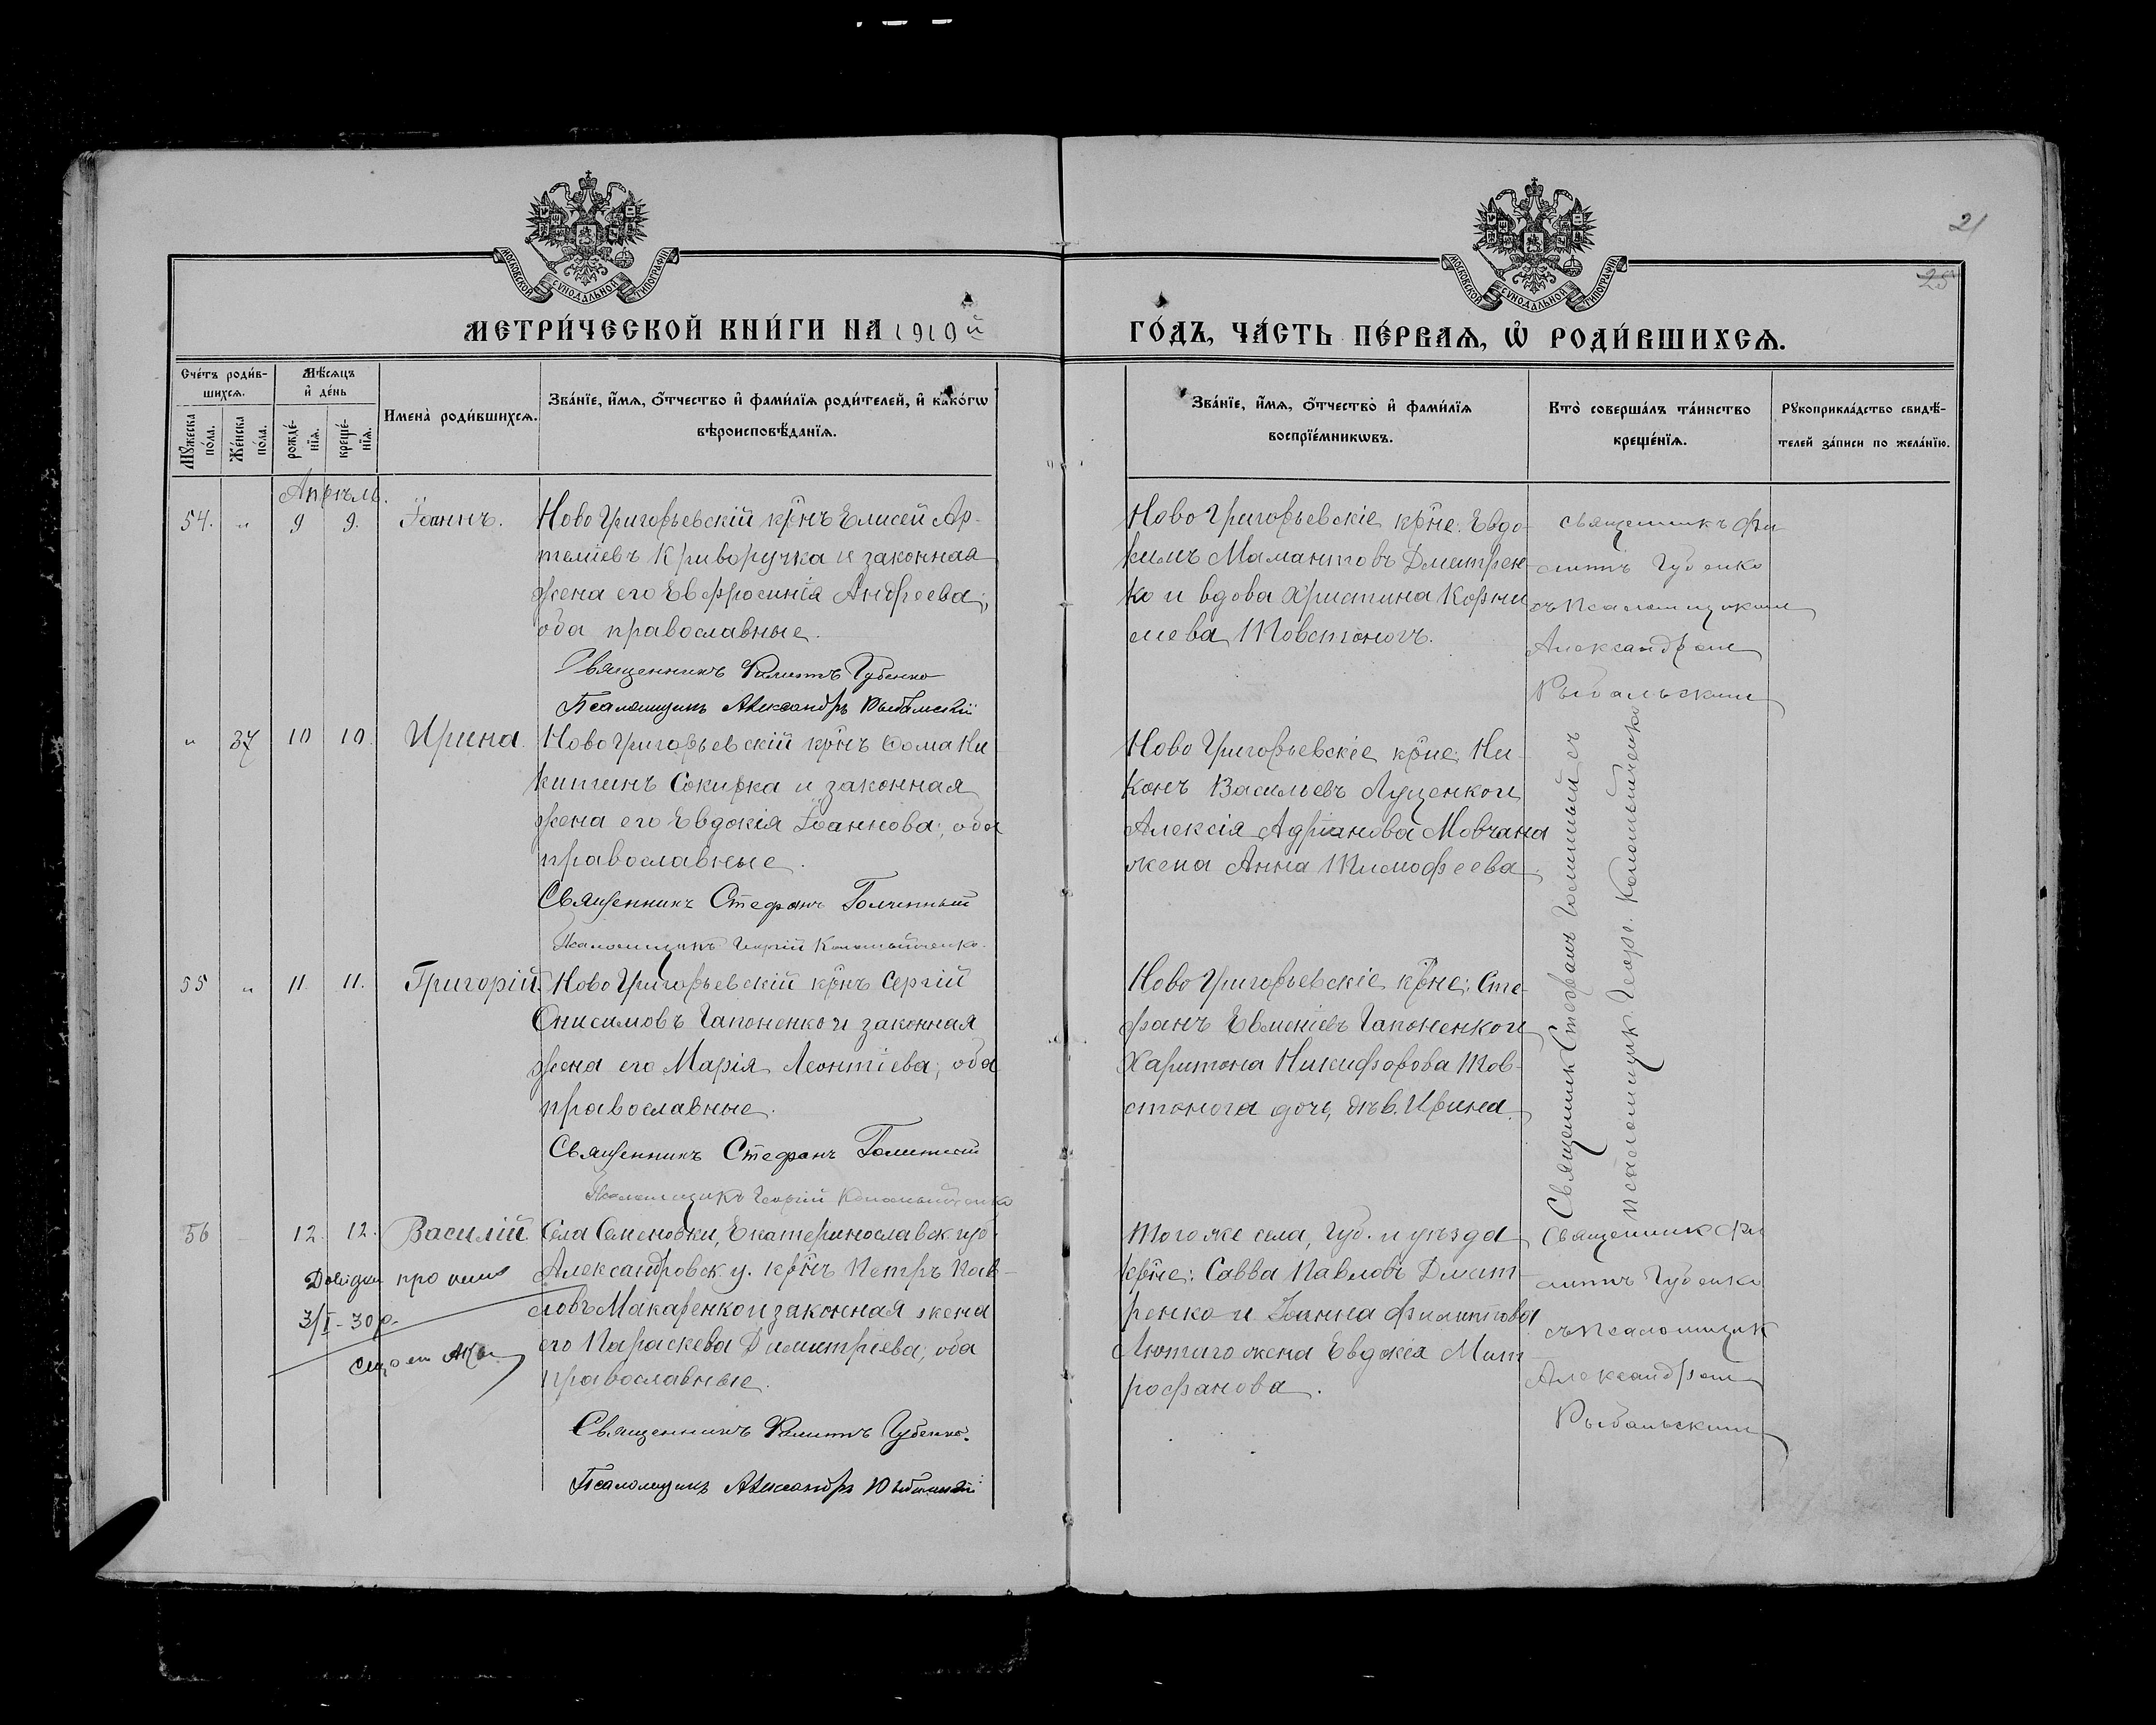 21
25
МОСКОВСКОЙ СУНОДАЛЬНОЙ ТИПОГРАФІИ
МОСКОВСКОЙ СУНОДАЛЬНОЙ ТИПОГРАФІИ
МЕТРИ́ЧЕСКОЙ КНИ́ГИ НА 1919й
ГО́ДЪ, ЧА́СТЬ ПЕ́РВАѦ, Ѡ҆ РОДИ́ВШИХСѦ.
Сче́тъ роди́в-
шихсѧ.
Мѣ́сѧцъ
и҆ де́нь
Мꙋ́жеска
по́ла.
Же́нска
по́ла.
рожде́-
нїѧ.
креще́-
нїѧ.
Имена̀ роди́вшихсѧ.
Зва́нїе, и҆́мѧ, ѻ҆́тчество и҆ фами́лїѧ роди́телей, и҆ како́гѡ
вѣроисповѣ́данїѧ.
Зва́нїе, и҆́мѧ, ѻ҆́тчество и҆ фами́лїѧ
воспрїе́мникѡвъ.
Кто̀ соверша́лъ та́инство
креще́нїѧ.
Рꙋкоприкла́дство свидѣ́-
телей за́писи по жела́нїю.
Апрѣль.
54. " 9 9. Іоаннъ.
Ново Григорьевскій крнъ Елисей Ар-
темиевъ Криворучка и законная
жена его Евфросинія Андреева;
оба православные.
Священникъ Филиппъ Губенко
Псаломщикъ Александръ Рыбальскій
Ново Григорьевскіе крне: Евдо-
кимъ Мамантовъ Дмитрен-
ко и вдова Христина Корни
лиева Товстоногъ.
Священникъ Фи
липпъ Губенко
съ псаломщикомъ
Александромъ
Рыбальскимъ
" 37 10 10. Ирина.
Ново Григорьевскій крнъ Ѳома Ни
китинъ Сокирка и законная
жена его Евдокія Іоаннова; оба
православные.
Священникъ Стефанъ Голитный
Псаломщикъ Георгій Коломыйченко.
Ново Григорьевскіе крне: Ни-
конъ Васильевъ Луценко и
Алексія Адріанова Мовчана
жена Анна Тимофеева.
Священникъ Стефанъ Голитный съ
псаломщик Георг. Коломыйченко
55 " 11 11. Григорій.
Ново Григорьевскій крнъ Сергій
Онисимовъ Гапоненко и законная
жена его Марія Леонтіева; оба
православные.
Священникъ Стефанъ Голитный
Псаломщикъ Георгій Коломыйченко
Ново Григорьевскіе крне: Сте-
фанъ Евменіевъ Гапоненко и
Харитона Никифорова Тов-
стонога дочь, дѣв. Ирина.
56 12. 12. Василій.
Села Семеновки, Екатеринославск. губ.
Александровск. у. крнъ Петръ Пав-
ловъ Макаренко и законная жена
его Параскева Димитріева; оба
православные.
Священникъ Филиппъ Губенко.
Псаломщикъ Александръ Рыбальскій
3/I-30р.
Того же села, губ. и уѣзда
крне: Савва Павловъ Дмит-
ренко и Іоанна Филиппова
Лютаго жена Евдокія Мит
рофанова.
Священник Фи
липпъ Губенко
съ псаломщик
Александромъ
Рыбальскимъ